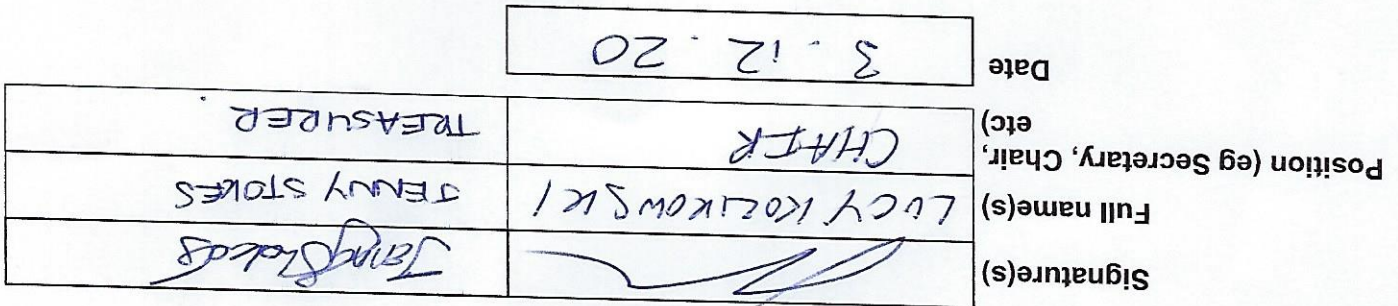 Signature(s) Jenny Stokes
Full name(s) LUCY KOZIKOWSKI JENNY STOKES
Position (eg Secretary, Chair, etc) CHAIR TREASURER.
Date 3.12.20